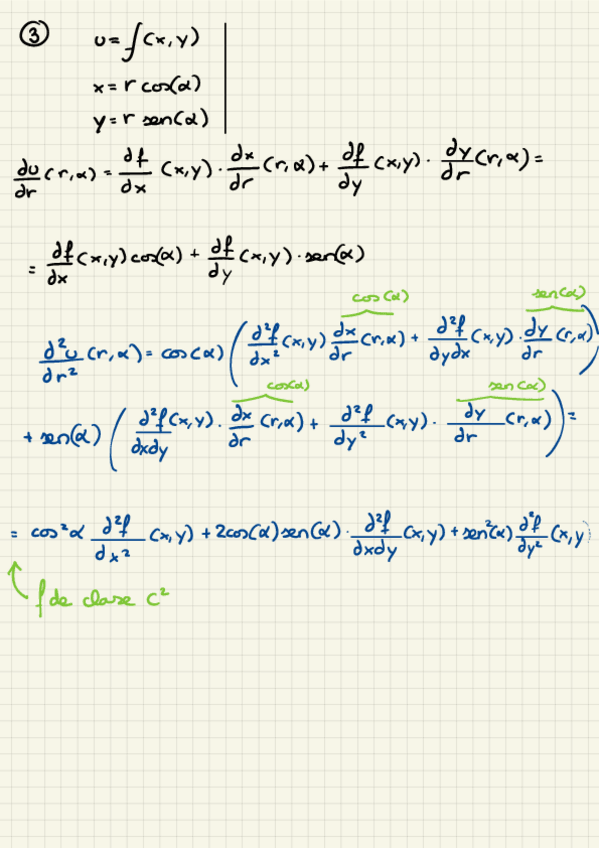 ③ u = f(x,y)
x = r cos(α)
y = r sen(α)
du/dr (r,α) = df/dx (x,y) · dx/dr (r,α) + df/dy (x,y) · dy/dr (r,α) =
= df/dx (x,y) cos(α) + df/dy (x,y) · sen(α)
cos(α) sen(α)
d²u/dr² (r,α) = cos(α) ( d²f/dx² (x,y) dx/dr (r,α) + d²f/dydx (x,y) · dy/dr (r,α) )
cos(α) sen(α)
+ sen(α) ( d²f/dxdy (x,y) · dx/dr (r,α) + d²f/dy² (x,y) · dy/dr (r,α) ) =
= cos²α d²f/dx² (x,y) + 2cos(α) sen(α) · d²f/dxdy (x,y) + sen²(α) d²f/dy² (x,y)
f de clase C²